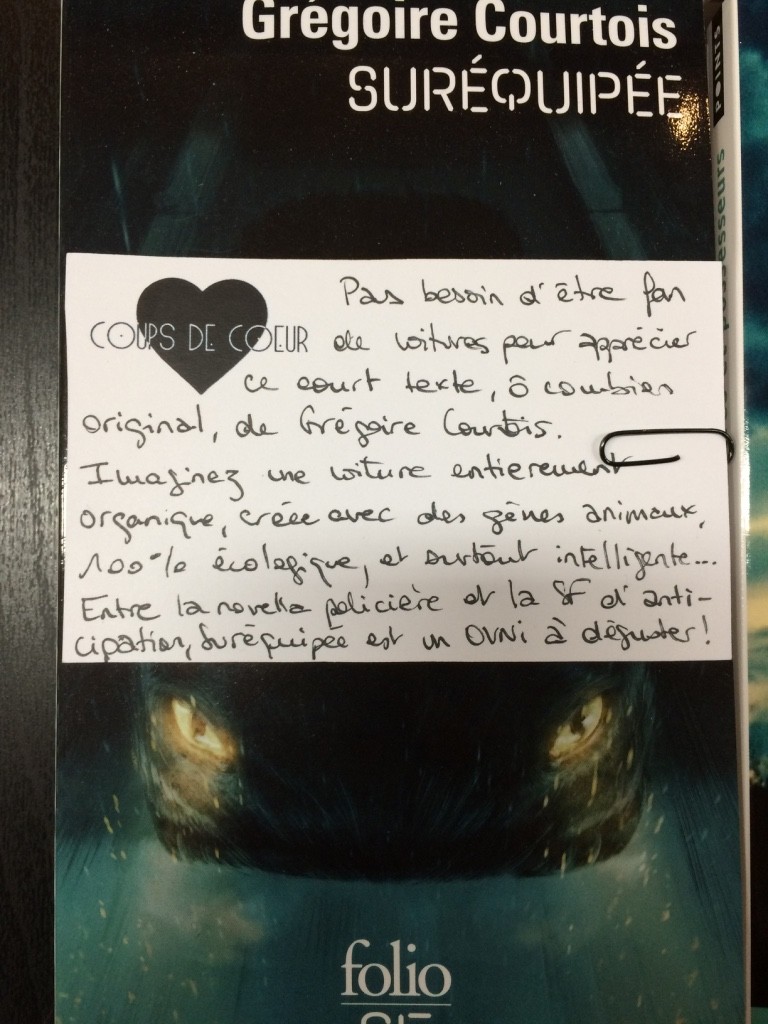 Grégoire Courtois
SURÉQUIPÉE
POINTS
COUPS DE COEUR
Pas besoin d'être fan
de voitures pour apprécier
ce court texte, ô combien
original, de Grégoire Courtois.
Imaginez une voiture entierement
organique, créée avec des gènes animaux,
100% écologique, et surtout intelligente...
Entre la novella policière et la SF d'anti-
cipation, Suréquipée est un OVNI à déguster!
folio